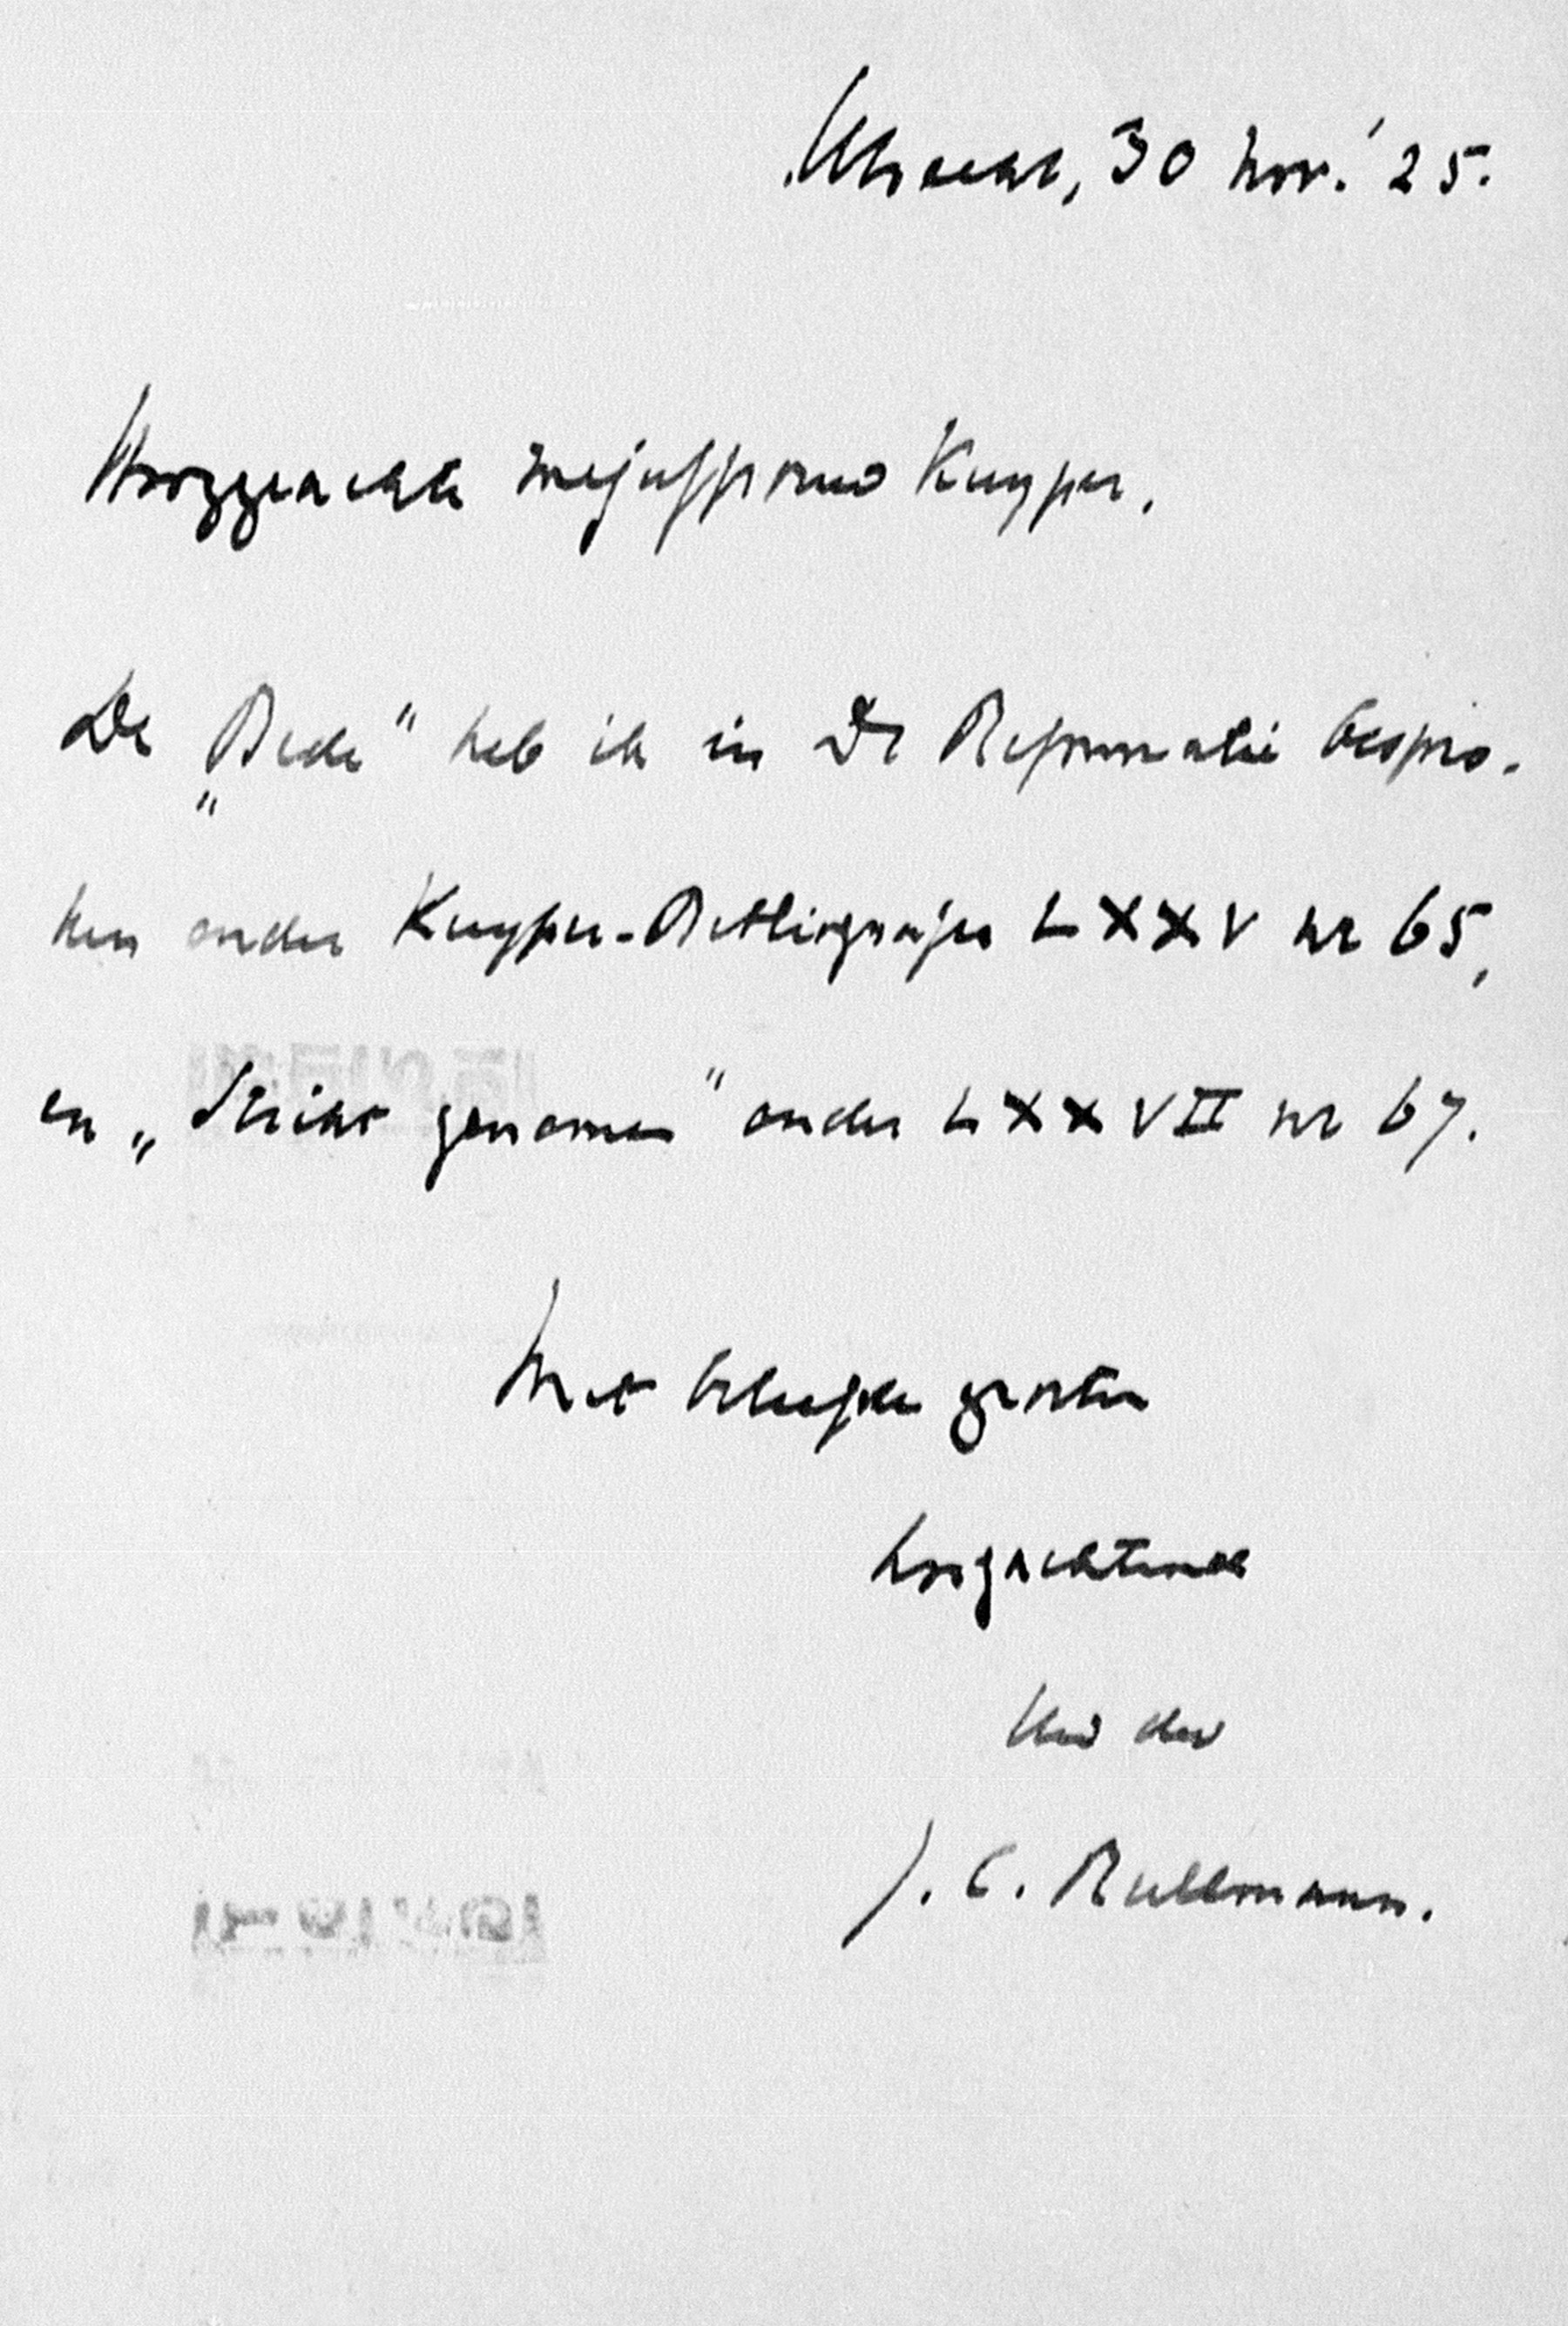 Utrecht, 30 Nov. '25.
Hooggeachte mejuffrouw Kuyper,
De „Bede" heb ik in De Reformatie bespro-
ken onder Kuyper-Bibliografie LXXV nr 65,
en „Strikt genomen" onder LXXVII nr 67.
Met beleefde groeten
hoogachtend
Uw dw
J. C. Rullmann.